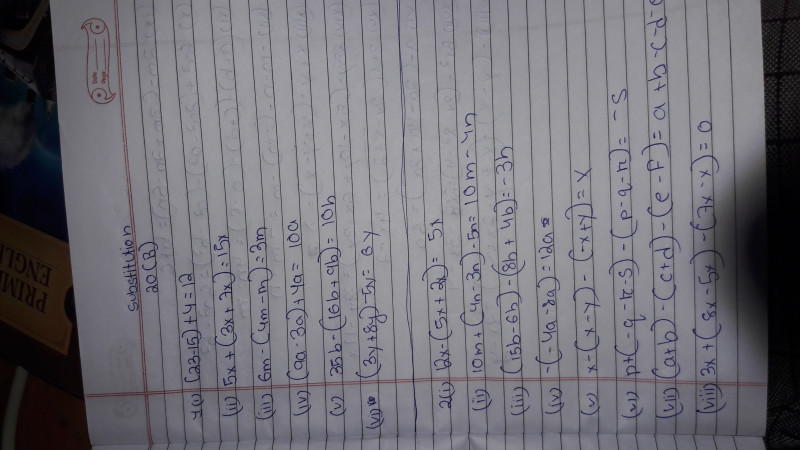 substitution
20(B)
1(i) (23-15)+4=12
(ii) 5x+(3x+7x)=15x
(iii) 6m-(4m-m)=3m
(iv) (9a-3a)+4a= 10a
(v) 35b-(16b+9b)=10b
(vi) (3y+8y)-5y= 6y
2(i) 12x-(5x+2x)= 5x
(ii) 10m+(4n-3n)-5n= 10m-4n
(iii) (15b-6b)-(8b+4b)=-3b
(iv) -(-4a-8a)=12a
(v) x-(x-y)-(-x+y)=x
(vi) p+(-q-r-s)-(p-q-r)= -s
(vii) (a+b)-(c+d)-(e-f)= a+b-c-d-e
(viii) 3x+(8x-5x)-(7x-x)=0
PRIM
ENGLI